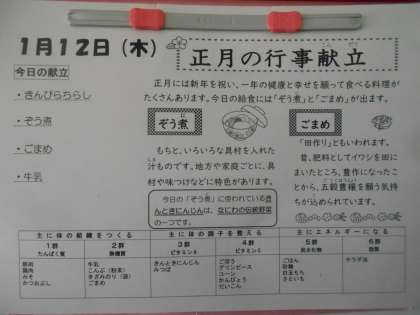 1月12日（木）
正月の行事献立
今日の献立
・きんぴらちらし
・ぞう煮
・ごまめ
・牛乳
正月には新年を祝い、一年の健康と幸せを願って食べる料理が
たくさんあります。今日の給食には「ぞう煮」と「ごまめ」が出ます。
ぞう煮
もちと、いろいろな具材を入れた
汁ものです。地方や家庭ごとに、具
材や味つけなどに特色があります。
今日の「ぞう煮」に使われている金
時にんじんは、なにわの伝統野菜
の一つです。
ごまめ
「田作り」ともいわれます。
昔、肥料としてイワシを田に
まいたところ、豊作になったこ
とから、五穀豊穣を願う気持
ちが込められています。
主に体の組織をつくる
主に体の調子を整える
主にエネルギーになる
1群
たんぱく質
2群
無機質
3群
ビタミンA
4群
ビタミンC
5群
炭水化物
6群
脂質
豚肉
鶏肉
みそ
かつおぶし
牛乳
こんぶ（粉末）
きざみのり（袋）
ごまめ
きんときにんじん
みつば
ごぼう
グリンピース
コーン
かんぴょう
だいこん
ごはん
砂糖
白玉もち
さといも
サラダ油